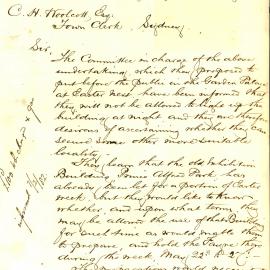 C. H. Woolcott, Esq.
Town Clerk, Sydney
Sir,
The Committee in charge of the above
undertaking, which they proposed to
put before the public in the Garden Palace
at Easter next, have been informed that
they will not be allowed to light up the
building at night and they are therefore
desirous of ascertaining whether they can
secure some other more suitable
locality.
They learn that the old Exhibition
Building, Prince Alfred Park has
already been let for a portion of Easter
week, but they would like to know
whether, and upon what terms, they
may be allowed the use of that Building
for such time as would enable them
to prepare, and hold the Fayre there
during the week, May 22nd to 27th
The preparations would need